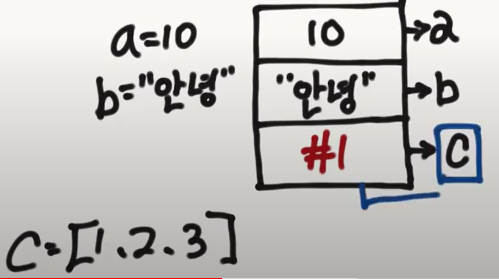 a=10
b="안녕"
10 → a
"안녕" → b
#1 → C
C=[1.2.3]